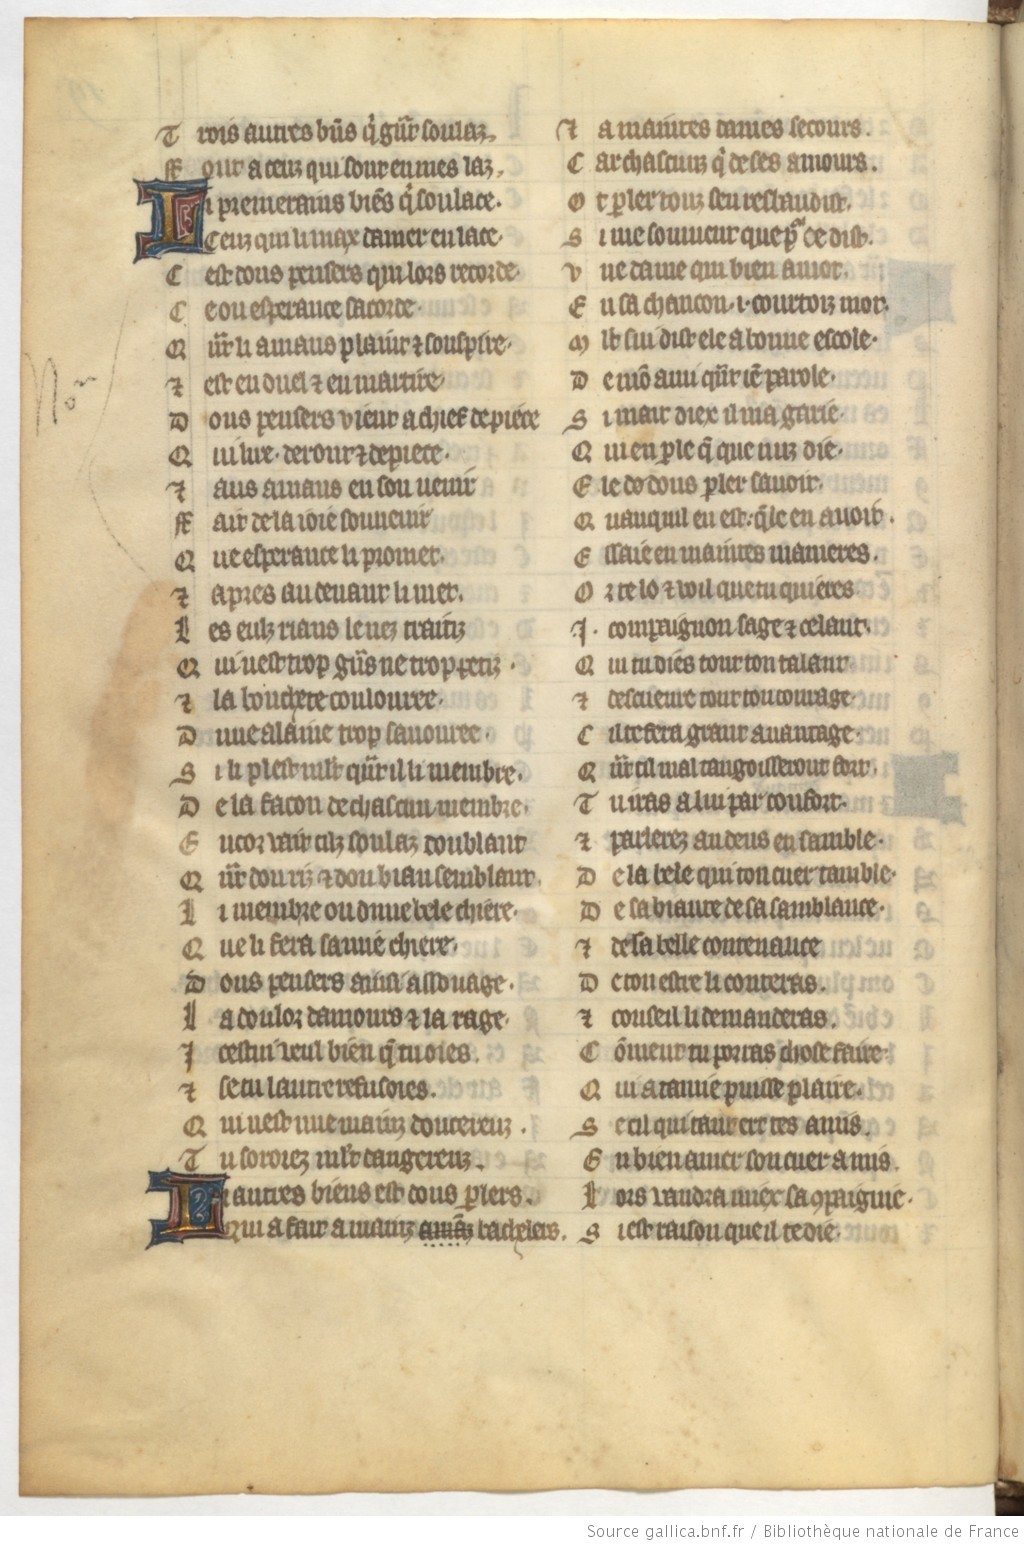 T rois autres bñs q̃ gñr soulaz.
ff ont a ceuz qui sont en mes laz.
Li premerains biẽs q̃ soulace.
Ceuz qui li max damer enlace.
C est dous pensers qui lors recorde.
C e ou esperance sacorde.
Q ñt li amans plaint ⁊ souspire.
⁊ est en duel ⁊ en martire
D ous pensers vient a chief de piece
Q ui lire. derout ⁊ depiece.
⁊ aus amans en son uenir
ff ait de la ioie souuenir
Q ue esperance li promet.
⁊ apres au deuant li met.
L es eulz rians le nez traitiz
Q ui nest trop grñs ne trop petiz.
⁊ la bouchete coulouree.
D une alaine trop sauouree.
S i li plest mlt qñt il li membre.
D e la facon de chascun membre.
E ncor vait ciz soulaz doublant
Q ñt dou riz ⁊ dou biau semblant.
L i membre ou dune bele chiere.
Q ue li fera samie chiere.
D ous pensers ainsi assouage.
L a doulor damours ⁊ la rage.
J cestui veul bien q̃ tu oies.
⁊ se tu lautre refusoies.
Q ui nest mie mainz doucereuz.
T u soroiez mlt dangereuz.
Li autres biens est dous plers.
Qui a fait a mainz amãz bachelers.
⁊ a maintes dames secours.
C ar chascuns q̃ de ses amours.
O t pler touz sen resbaudist.
S i me souuient que p̃ ce dist.
V ne dame qui bien amot.
E n sa chancon .i. courtoiz mot.
M lt sui dist ele a bonne escole.
D e mõ ami qñt iẽ parole.
S i mait diex il ma garie
Q ui en ple q̃ que nuz die.
E le de dous pler sauoir.
Q uanquil en est. q̃le en auoit.
E ssaie en maintes manieres.
O r te lo ⁊ voil que tu quieres
J. compaignon sage ⁊ celant.
Q ui tu dies tout ton talant
⁊ descueure tout ton courage.
C il te fera grant auantage.
Q ñt ti mal tangoisseront fort.
T u iras a lui par confort.
⁊ parlerez andeus ensamble.
D e la bele qui ton cuer tamble.
D e sa biaute de sa samblance.
⁊ de sa belle contenance
D e ton estre li conteras.
⁊ conseil li demanderas.
C õment tu porras chose faire
Q ui a tamie puisse plaire.
S e cil qui tant ert tes amis.
E n bien amer son cuer a mis.
L ors vaudra miex sa ꝯpaignie.
S i est raison que il te die.
Non
Source gallica.bnf.fr / Bibliothèque nationale de France